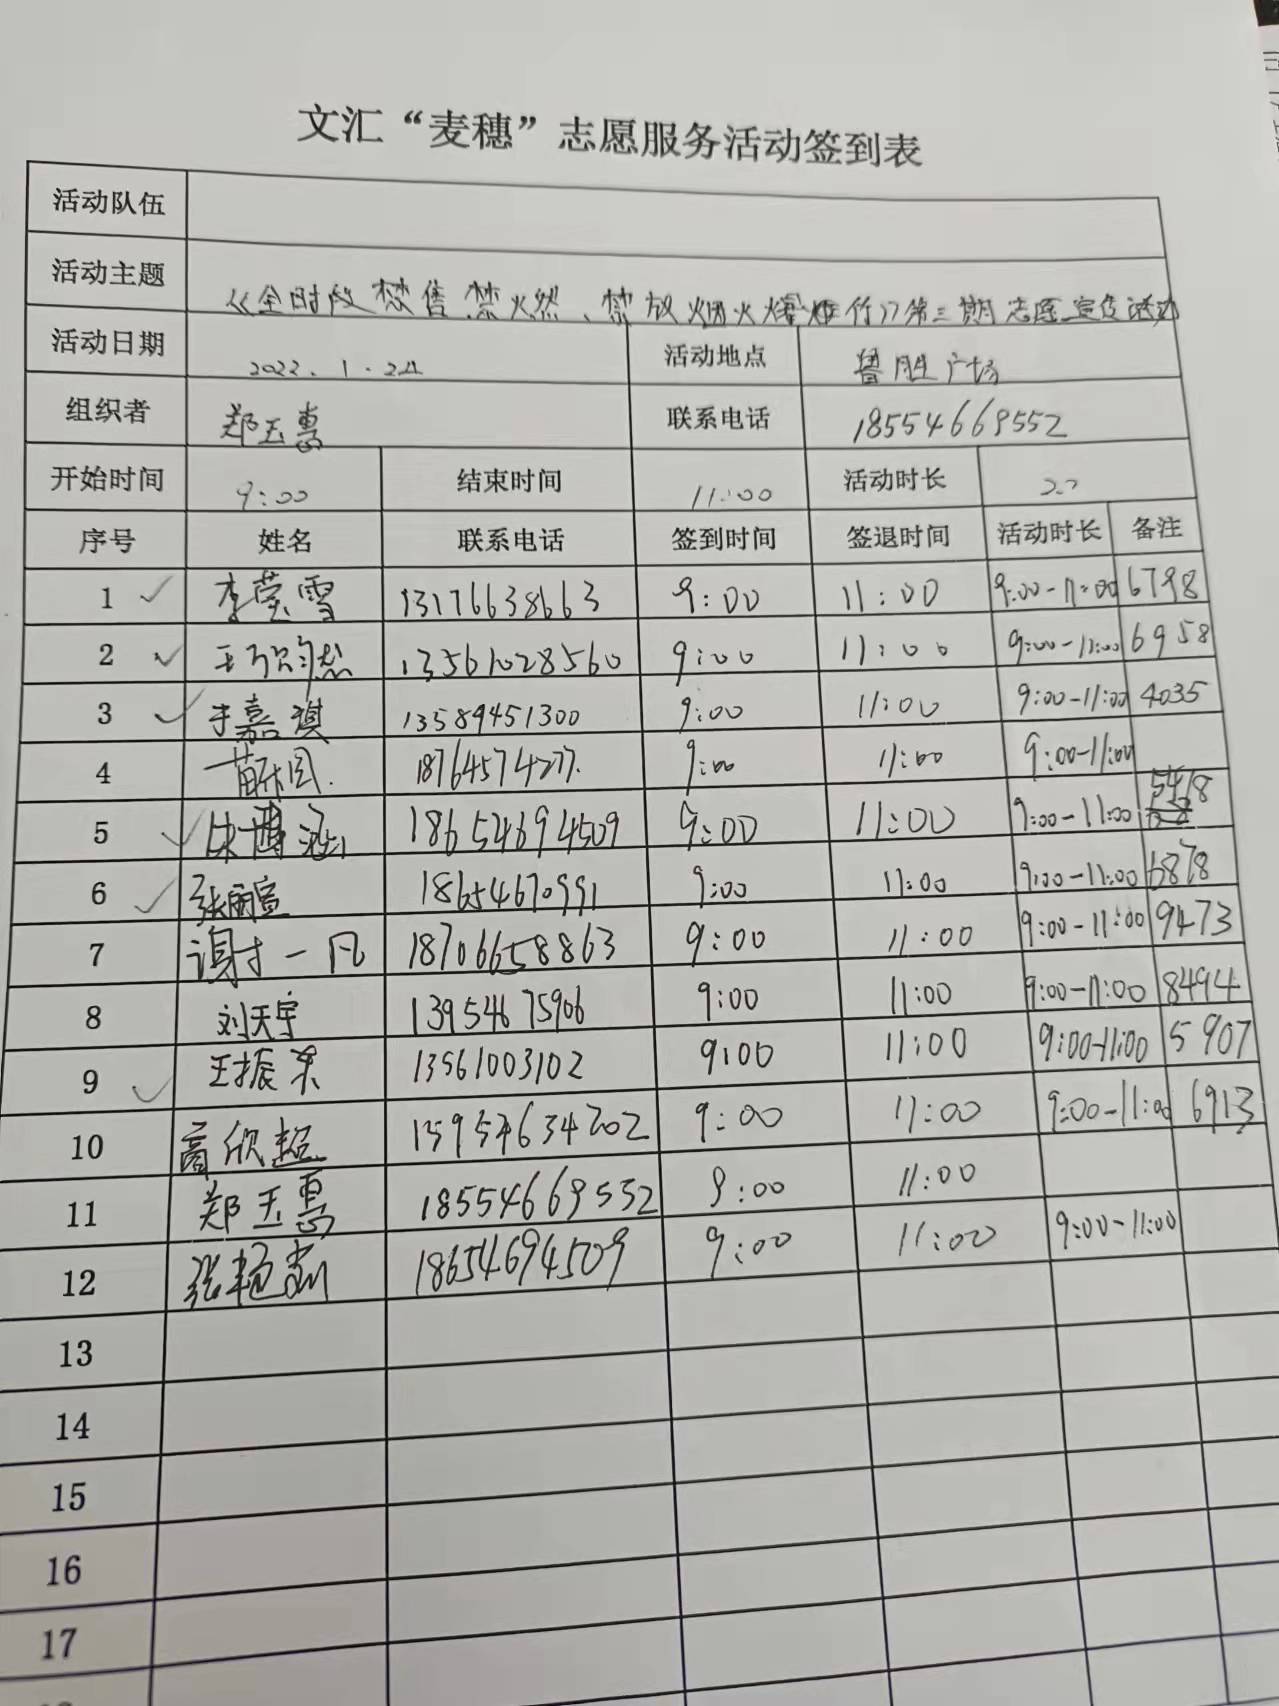 文汇“麦穗”志愿服务活动签到表
活动队伍
活动主题 《全时段禁售、禁火然、禁放烟火爆炸竹》第三期志愿宣传活动
活动日期 2022.1.24 活动地点 鲁胜广场
组织者 郑玉惠 联系电话 18554669552
开始时间 9:00 结束时间 11:00 活动时长 2.0
序号 姓名 联系电话 签到时间 签退时间 活动时长 备注
1 李莹雪 13176638663 9:00 11:00 9:00-11:00 6798
2 13561028560 9:00 11:00 9:00-11:00 6958
3 于嘉琪 13589451300 9:00 11:00 9:00-11:00 4035
4 18764574277 9:00 11:00 9:00-11:00
5 18654694509 9:00 11:00 9:00-11:00 5418
6 张丽萱 18654670991 9:00 11:00 9:00-11:00 6878
7 谢一凡 18706658863 9:00 11:00 9:00-11:00 9473
8 刘天宇 13954675906 9:00 11:00 9:00-11:00 8494
9 王振荣 13561003102 9:00 11:00 9:00-11:00 5907
10 高欣超 15954634202 9:00 11:00 9:00-11:00 6913
11 郑玉惠 18554669552 9:00 11:00
12 18654694509 9:00 11:00 9:00-11:00
13
14
15
16
17